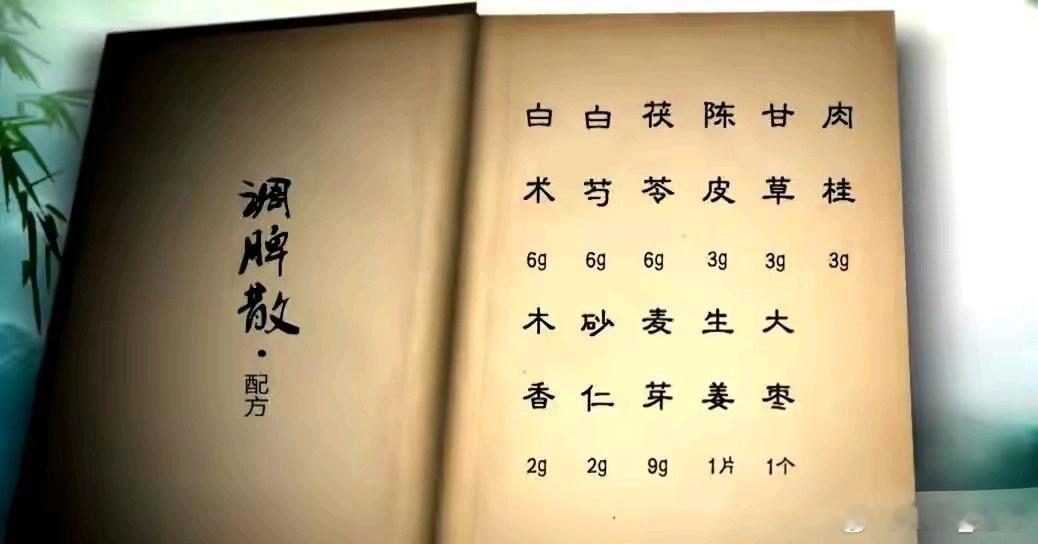 调脾散·配方
白术 6g
白芍 6g
茯苓 6g
陈皮 3g
甘草 3g
肉桂 3g
木香 2g
砂仁 2g
麦芽 9g
生姜 1片
大枣 1个